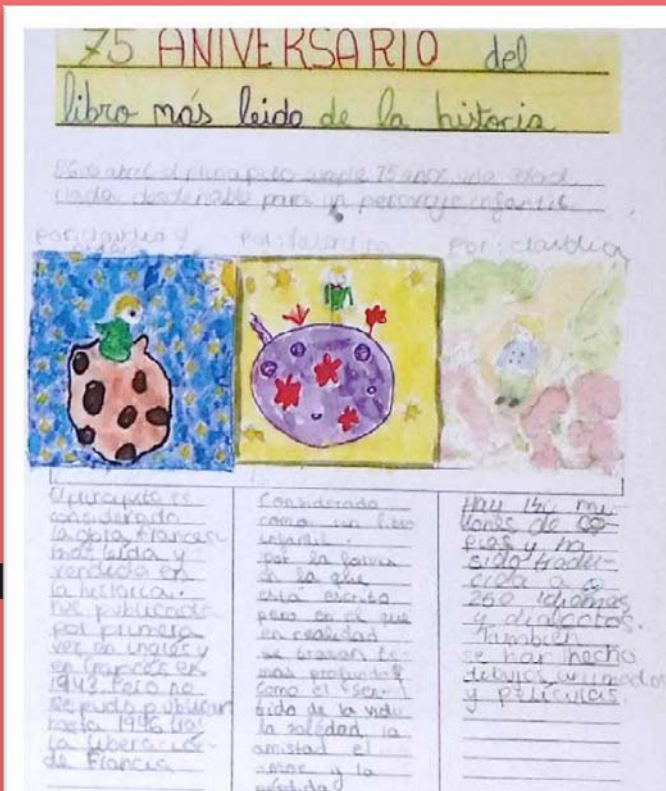 75 ANIVERSARIO del
libro más leido de la historia
El 6 de abril el principito cumple 75 años una edad
nada desdeñable para un personaje infantil.
por: claudia y
por: Valentina
por: claudia
El principito es
considerado
la obra francesa
más leída y
vendida en
la historia.
fue publicado
por primera
vez en inglés y
en francés en
1943. Pero no
se pudo publicar
hasta 1946 tras
la liberación
de Francia
Considerado
como un libro
infantil.
por la forma
en la que
está escrito
pero en el que
en realidad
se tratan te-
mas profundos
como el sen-
tido de la vida
la soledad, la
amistad el
amor y la
pérdida
Hay 140 mi
llones de co-
pias y ha
sido tradu-
cida a
250 idiomas
y dialectos.
También
se han hecho
dibujos animados
y películas.